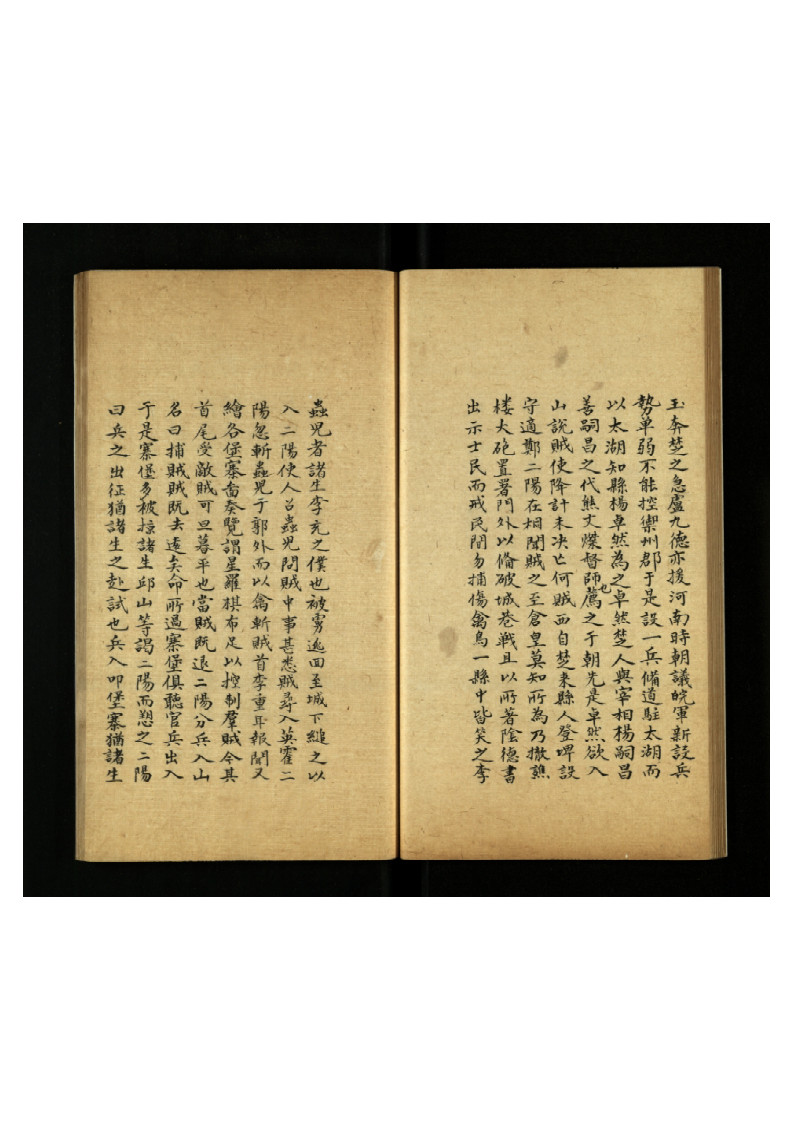 玉奔楚之急盧九德亦援河南時朝議皖軍新設兵
勢单弱不能控禦州郡于是設一兵備道駐太湖而
以太湖知縣楊卓然為之卓然楚人與宰相楊嗣昌
善嗣昌之代熊文燦督師也薦之于朝先是卓然欲入
山說賊使降計未决亡何賊西自楚来縣人登埤設
守適鄭二陽在桐聞賊之至倉皇莫知所為乃撤譙
楼大砲置署門外以俻破城巷戦且以所著陰德書
出示士民而戒民間勿捕傷禽鳥一縣中皆笑之李
蟲児者諸生李充之僕也被虜逃回至城下縋之以
入二陽使人召蟲児問賊中事甚悉賊尋入英霍二
陽忽斬蟲児于郭外而以禽斬賊首李重耳報聞又
繪各堡寨啚奏覽謂星羅棋布足以控制羣賊令其
首尾受敵賊可旦暮平也當賊既退二陽分兵入山
名曰捕賊賊既去遠矣命所過寨堡俱聽官兵出入
于是寨堡多被掠諸生邱山等謁二陽而愬之二陽
曰兵之出征猶諸生之赴試也兵入叩堡寨猶諸生